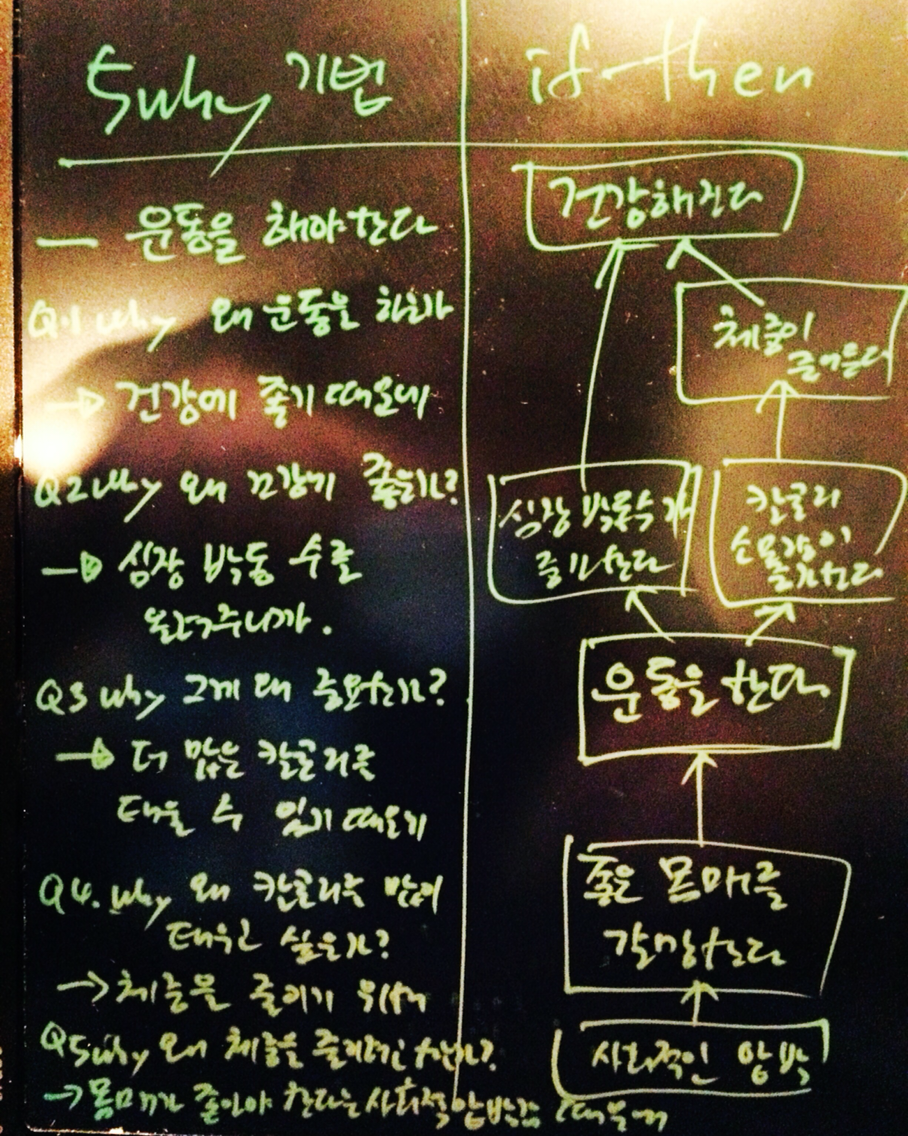 5why 기법
— 운동을 해야한다
Q1 why 왜 운동을 하나
→ 건강에 좋기 때문에
Q2 why 왜 건강에 좋은가?
→ 심장 박동 수를
올려주니까.
Q3 why 그게 왜 중요한가?
→ 더 많은 칼로리를
태울 수 있기 때문에
Q4. why 왜 칼로리를 많이
태우고 싶은가?
→ 체중을 줄이기 위해
Q5why 왜 체중을 줄이려 하는가?
→ 몸매가 좋아야 한다는 사회적 압박감 때문에
if-then
건강해진다
체중이
줄어든다
심장 박동수가
증가한다
칼로리
소모량이
증가한다
운동을 한다
좋은 몸매를
갈망한다
사회적인 압박